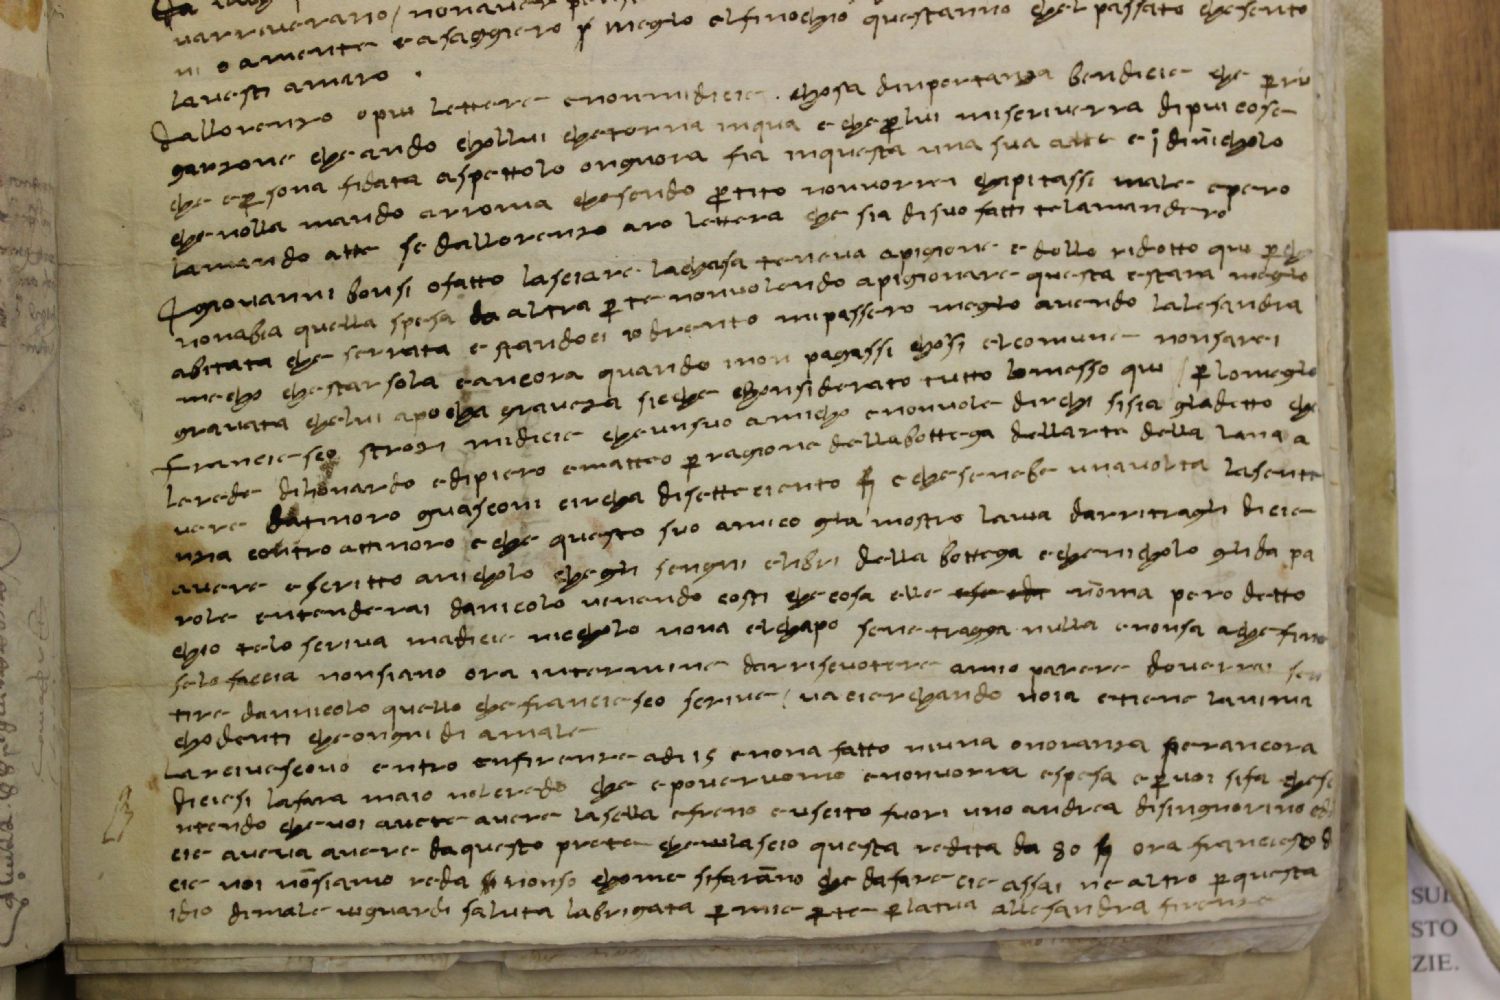 varreverano / nonavea
ni o amente e asaggiero se meglo el finochio questanno chel passato che sento
lavesti amaro .
Dallorenzo o piu lettere e non mi dicie . chosa dinportanza ben dicie che per u
garzone che ando chollui che torna in qua e che per lui mi scriverra di piu cose
che e persona fidata aspettolo ongnora fia in questa una sua atte e j di nicholo
che nolla mando a rroma che sendo partito non vorrei chapitassi male e pero
la mando atte se dallorenzo aro lettera che sia di suo fatti te la mandero
Giovanni bonsi o fatto lasciare la chasa teneva a pigione e dollo ridotto qui per che
non abia quella spesa da altra parte non volendo apigionare questa e stara meglo
abitata che serrata e standoci io drento mi passero meglo avendo lalesandra
mecho che star sola e ancora quando i non pagassi chosi el comune non sarei
gravata che lui a pocha graveza sicche chonsiderato tutto lo messo qui / per lo meglo
Franciesco strozi mi dicie che un suo amicho e non vole dir chi si sia gla detto che
lerede di lionardo e di piero e matteo per ragione della bottega dellarte della lana a
vere da tinoro guasconi circha di setteciento f e che se nebe una volta la sente
nzia contro a ttinoro e che questo suo amico gla mostro la via da rritragli dicie
avere e scritto a nicholo che gli sengni e libri della bottega e che nicholo gli da pa
role entenderai da nicolo venendo costi che cosa elle no ma pero detto
chio te lo scriva ma dicie nicholo nona el chapo se ne tragga nulla e non sa a che fine
se lo faccia non siano ora in termine da rriscuotere a mio parere doverrai sen
tire da nnicolo quello che franciesco scrive / va cierchando noia e tiene lanima
cho denti che ongni di a male
Larciveschovo entro enfirenze a di 15 e nona fatto niuna onoranza per ancora
diciesi la fara maio nol credo che e povervomo e non vorra e spesa e per voi si fa che se
ntendo che voi avete avere la sella e freno e uscito fuori uno andrea di singnorino e di
cie aveva avere da questo prete che vi lascio questa redita da 80 f ora franciesco di
cie voi non siamo reda f i non so chome si faranno che da fare cie assai ne altro per questa
idio di male vi guardi saluta la brigata per mie parte per la tua allesandra firenze